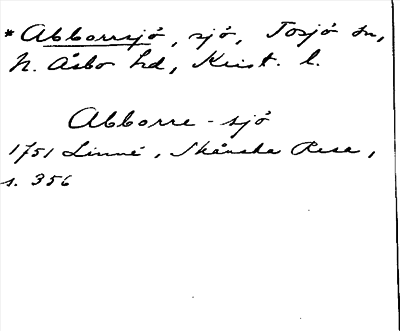 * Abborrsjö, sjö, Tosjö sn,
N. Åsbo hd, Krist. l.
Abborre-sjö
1751 Linné, Skånska Resa,
s. 356